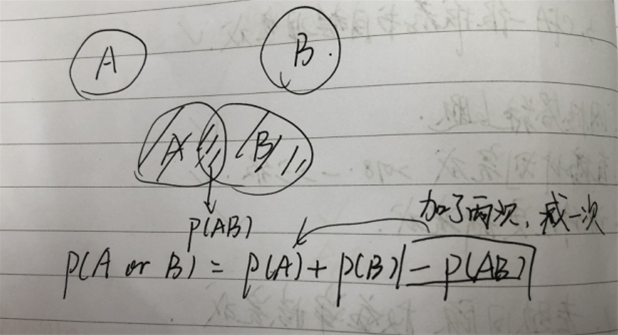 A B
A B
P(AB)
加了两次，减一次
P(A or B) = P(A) + P(B) - P(AB)